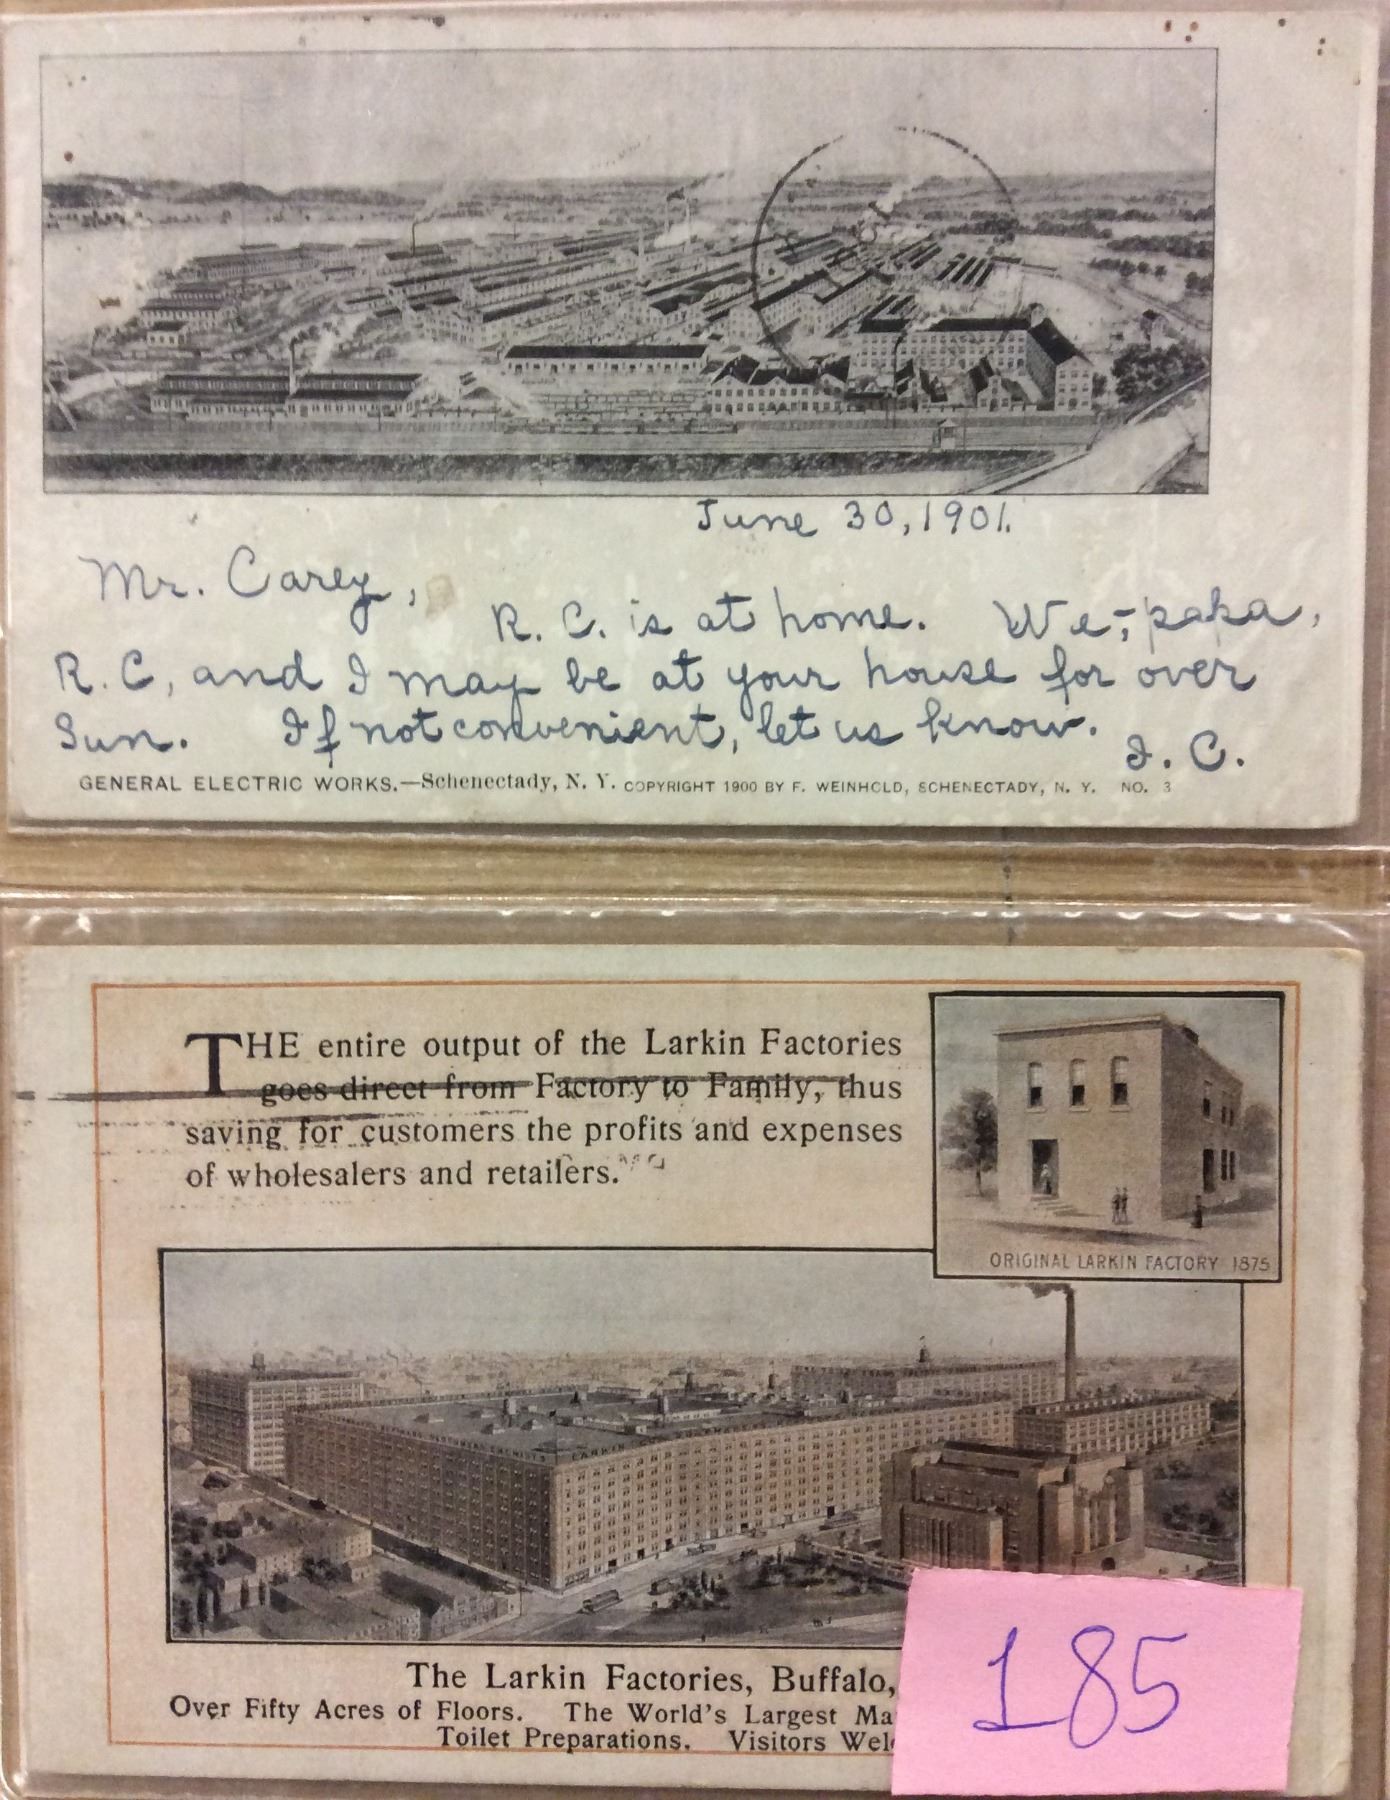 June 30, 1901.
Mr. Carey,
R. C. is at home. We, papa,
R. C, and I may be at your house for over
Sun. If not convenient, let us know.
I. C.
GENERAL ELECTRIC WORKS.—Schenectady, N. Y. COPYRIGHT 1900 BY F. WEINHOLD, SCHENECTADY, N. Y. NO. 3
THE entire output of the Larkin Factories
goes direct from Factory to Family, thus
saving for customers the profits and expenses
of wholesalers and retailers.
ORIGINAL LARKIN FACTORY 1875
The Larkin Factories, Buffalo,
Over Fifty Acres of Floors. The World's Largest Ma
Toilet Preparations. Visitors Wel
185